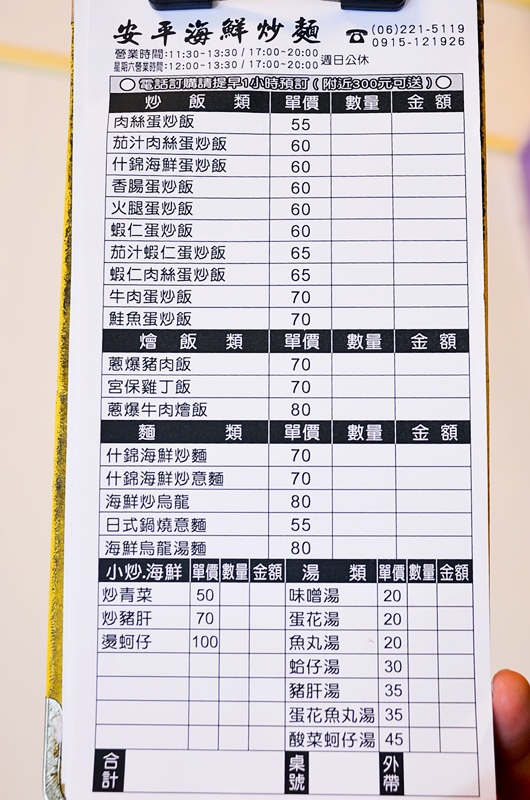 安平海鮮炒麵 ☎(06)221-5119
0915-121926
營業時間:11:30~13:30/17:00~20:00 週日公休
星期六營業時間:12:00~13:30/17:00~20:00
電話訂購請提早1小時預訂(附近300元可送)
炒飯類 單價 數量 金額
肉絲蛋炒飯 55
茄汁肉絲蛋炒飯 60
什錦海鮮蛋炒飯 60
香腸蛋炒飯 60
火腿蛋炒飯 60
蝦仁蛋炒飯 60
茄汁蝦仁蛋炒飯 65
蝦仁肉絲蛋炒飯 65
牛肉蛋炒飯 70
鮭魚蛋炒飯 70
燴飯類 單價 數量 金額
蔥爆豬肉飯 70
宮保雞丁飯 70
蔥爆牛肉燴飯 80
麵類 單價 數量 金額
什錦海鮮炒麵 70
什錦海鮮炒意麵 70
海鮮炒烏龍 80
日式鍋燒意麵 55
海鮮烏龍湯麵 80
小炒.海鮮 單價 數量 金額 湯類 單價 數量 金額
炒青菜 50 味噌湯 20
炒豬肝 70 蛋花湯 20
燙蚵仔 100 魚丸湯 20
蛤仔湯 30
豬肝湯 35
蛋花魚丸湯 35
酸菜蚵仔湯 45
合計 桌號 外帶